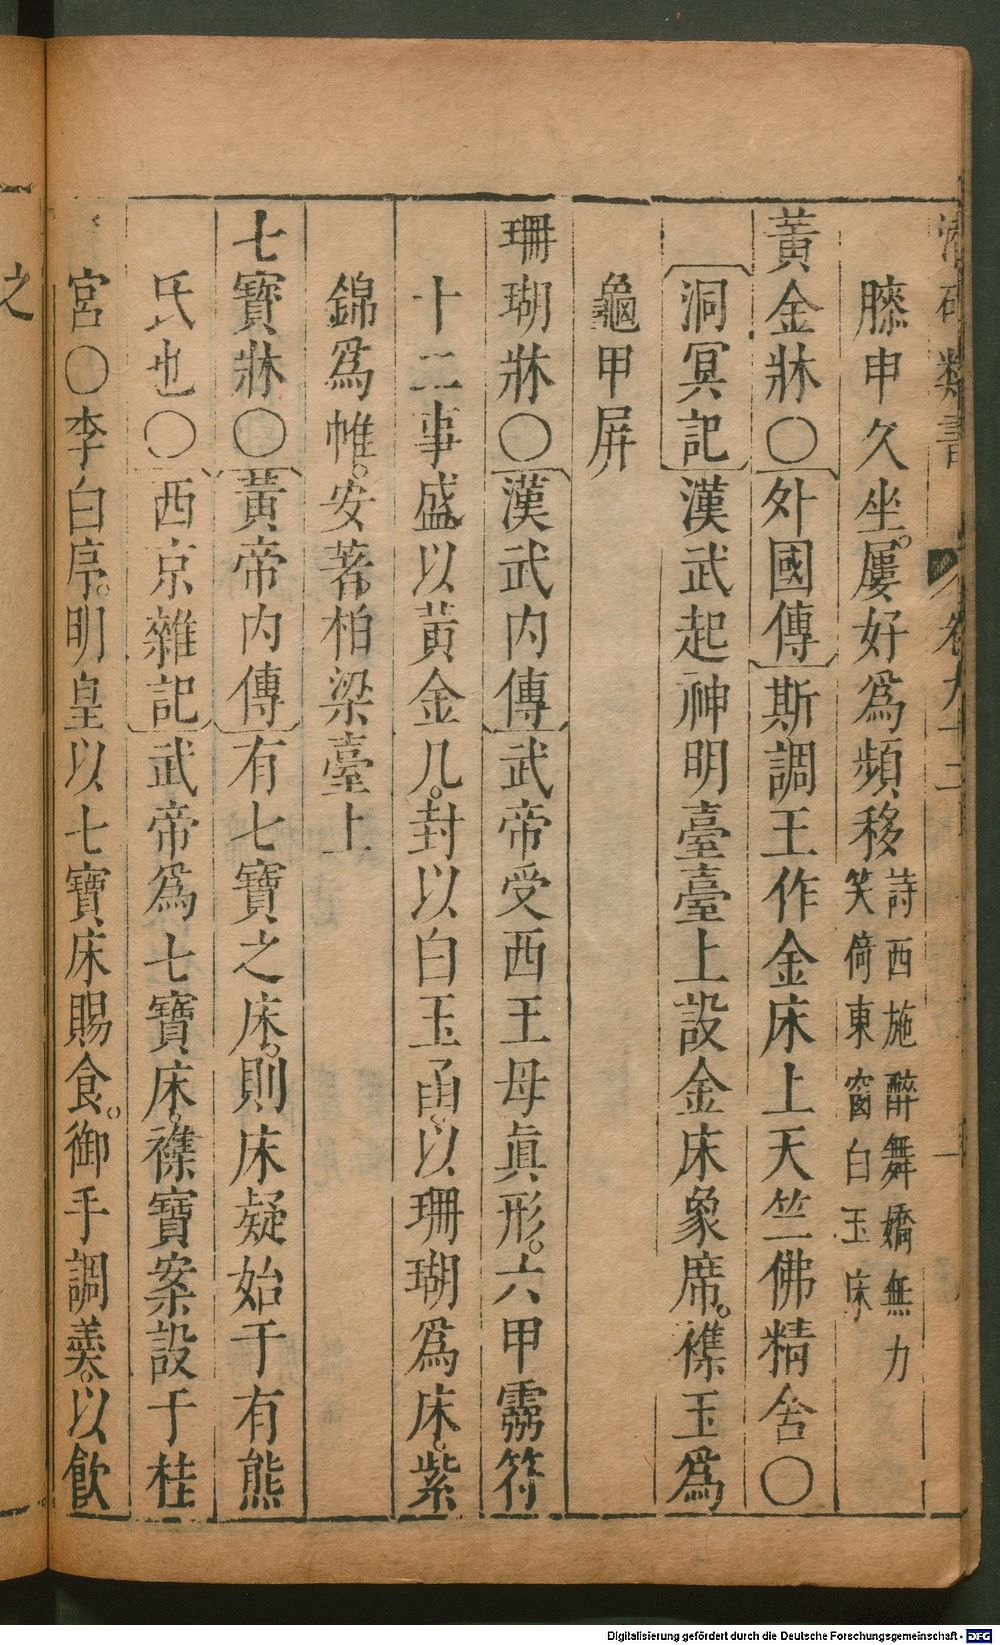 潛確類書 卷九十二
膝申久坐。屢好爲頻移詩西施醉舞嬌無力
笑倚東窗白玉床
黃金牀〇外國傳斯調王作金床上天竺佛精舍〇
洞冥記漢武起神明臺臺上設金床象席。襍玉爲
龜甲屏
珊瑚牀〇漢武內傳武帝受西王母眞形。六甲靈符
十二事盛以黃金几。封以白玉函。以珊瑚爲床。紫
錦爲帷。安著柏梁臺上
七寶牀〇黃帝內傳有七寶之床。則床疑始于有熊
氏也〇西京雜記武帝爲七寶床。襍寶案設于桂
宮〇李白序。明皇以七寶床賜食。御手調羹。以飲
之
Digitalisierung gefördert durch die Deutsche Forschungsgemeinschaft - DFG